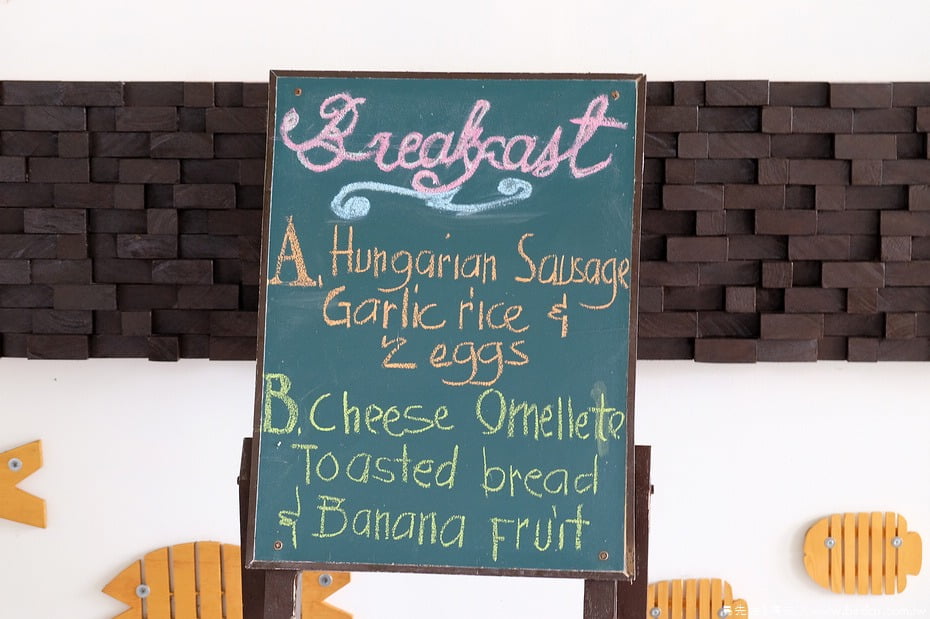 Breakfast
A. Hungarian Sausage
Garlic rice &
2 eggs
B. Cheese Omellete
Toasted bread
& Banana Fruit
www.bedea.com.tw